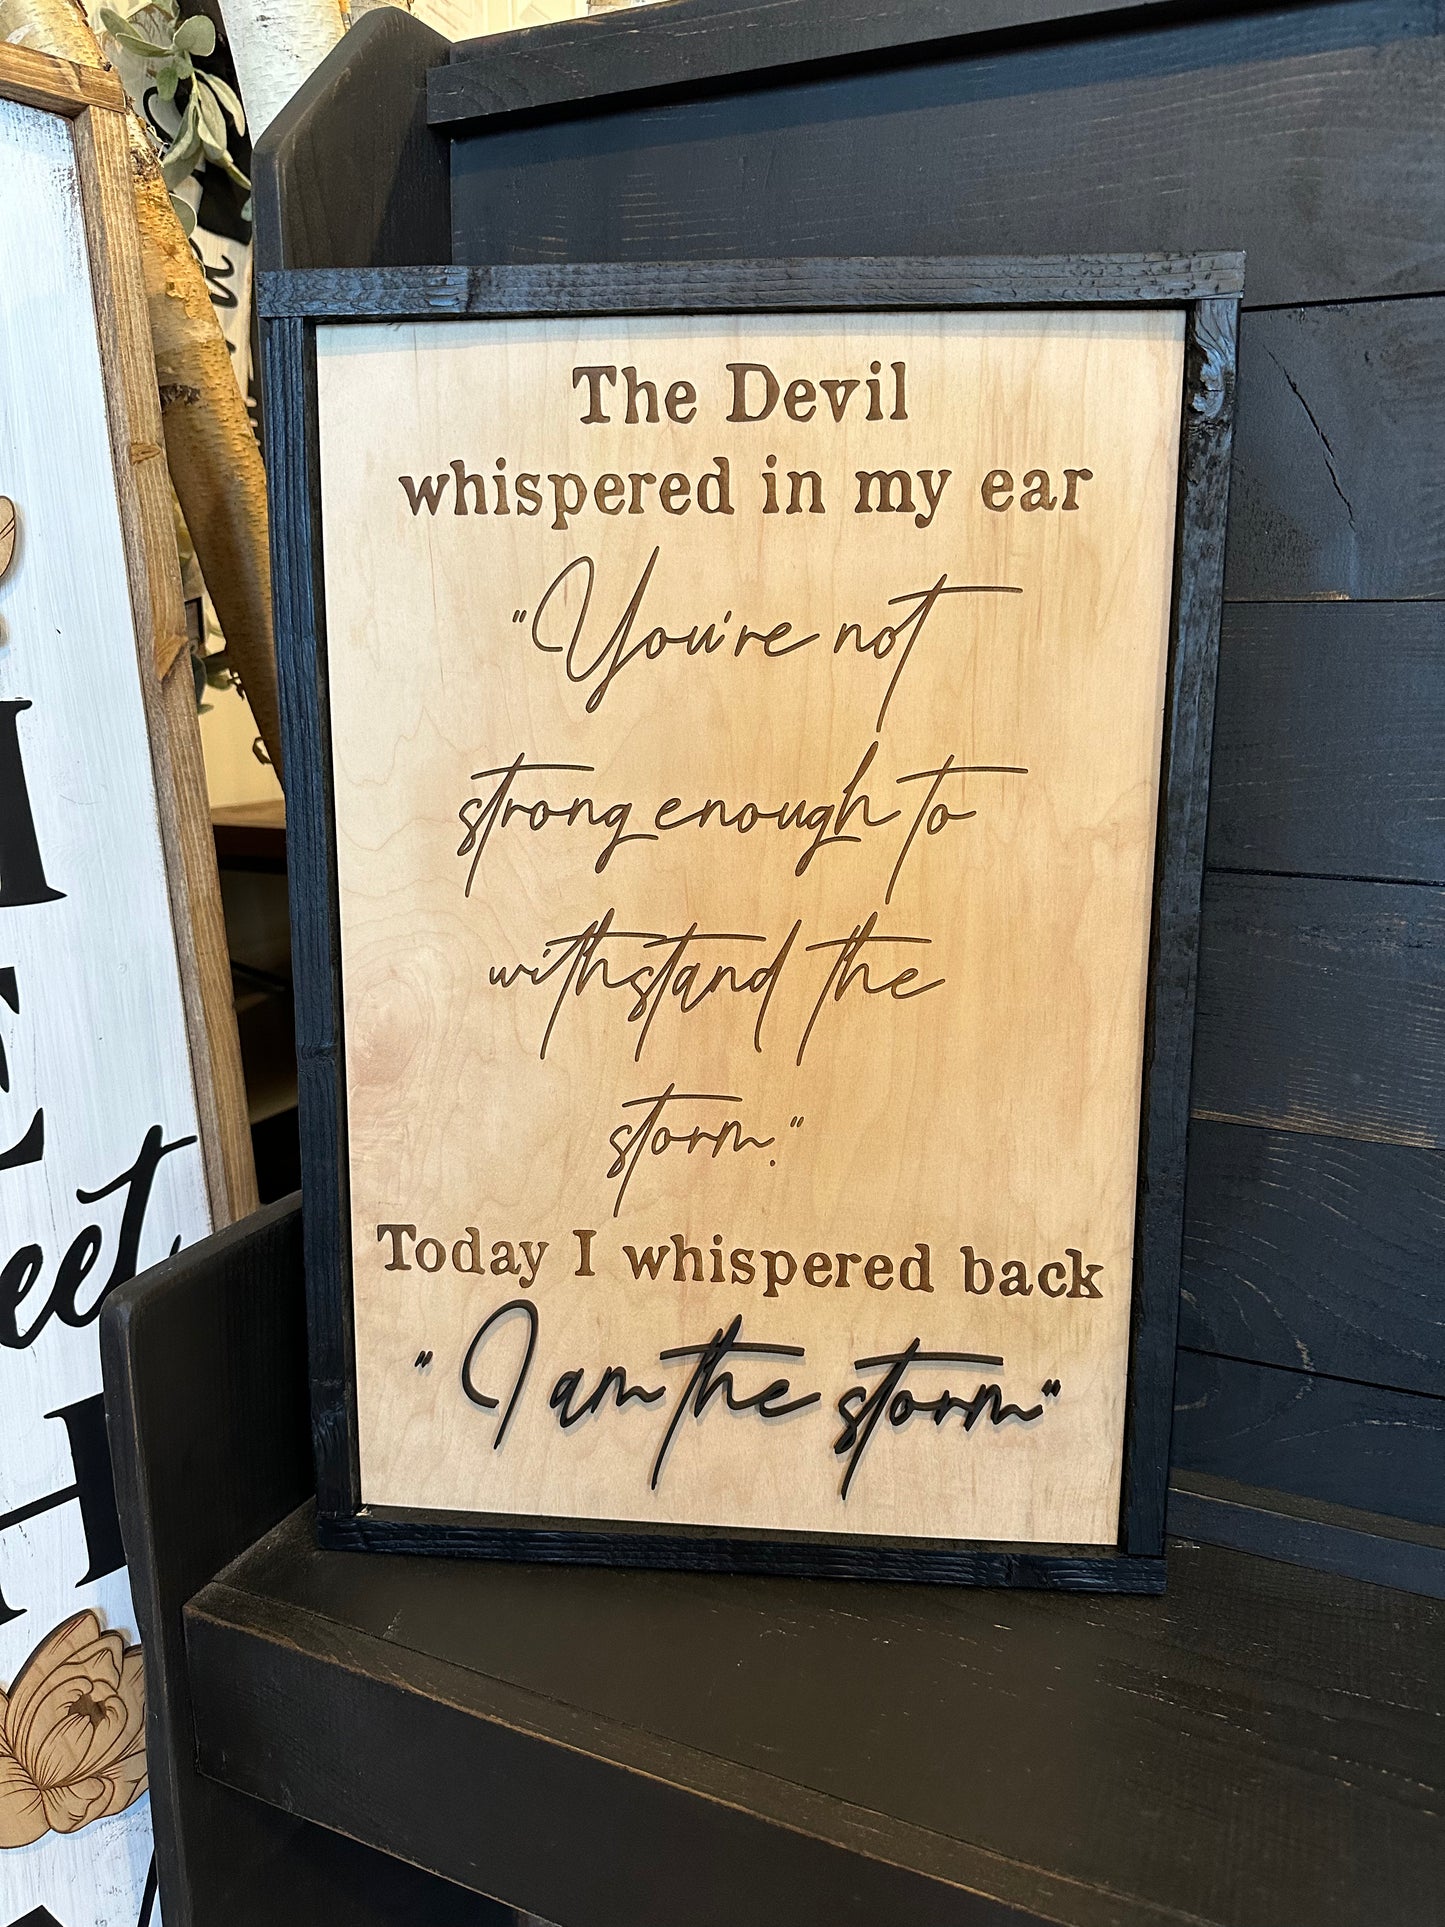 The Devil
whispered in my ear
"You're not
strong enough to
withstand the
storm."
Today I whispered back
"I am the storm"